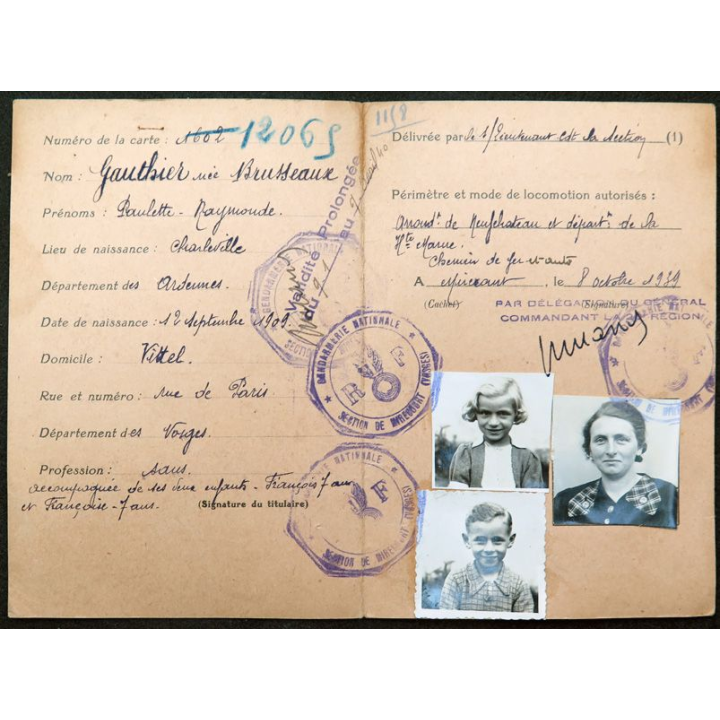 Numéro de la carte : N° 602 12065
Nom : Gauthier née Brusseaux
Prénoms : Paulette - Raymonde.
Lieu de naissance : Charleville
Département des Ardennes.
Date de naissance : 12 Septembre 1909.
Domicile : Vittel.
Rue et numéro : rue de Paris
Département des Vosges.
Profession : sans.
accompagnée de ses deux enfants - François 7 ans
et Françoise - 7 ans. (Signature du titulaire)
Validité Prolongée
du au
GENDARMERIE NATIONALE
SECTION
GENDARMERIE NATIONALE
R F
SECTION DE MIRECOURT (VOSGES)
NATIONALE
F
SECTION DE MIRECOURT (VOSGES)
1158
Délivrée par le S/Lieutenant Cdt la Section (1)
Périmètre et mode de locomotion autorisés :
Arrondt de Neufchateau et départt de la
Hte Marne.
Chemin de fer et auto
A Mirecourt, le 8 octobre 1939
(Cachet) (Signature)
PAR DÉLÉGATION DU GÉNÉRAL
COMMANDANT LA RÉGION
SECTION DE MIRECOURT (VOSGES)